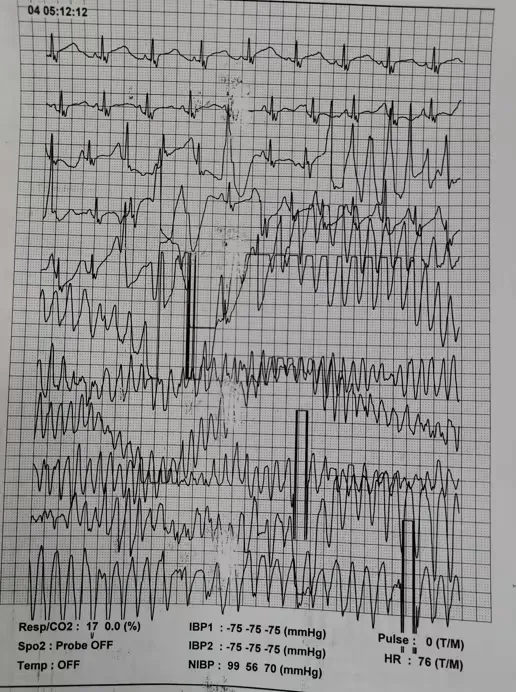 04 05:12:12
Resp/CO2 : 17 0.0 (%)
Spo2 : Probe OFF
Temp : OFF
IBP1 : -75 -75 -75 (mmHg)
IBP2 : -75 -75 -75 (mmHg)
NIBP : 99 56 70 (mmHg)
Pulse : 0 (T/M)
HR : 76 (T/M)